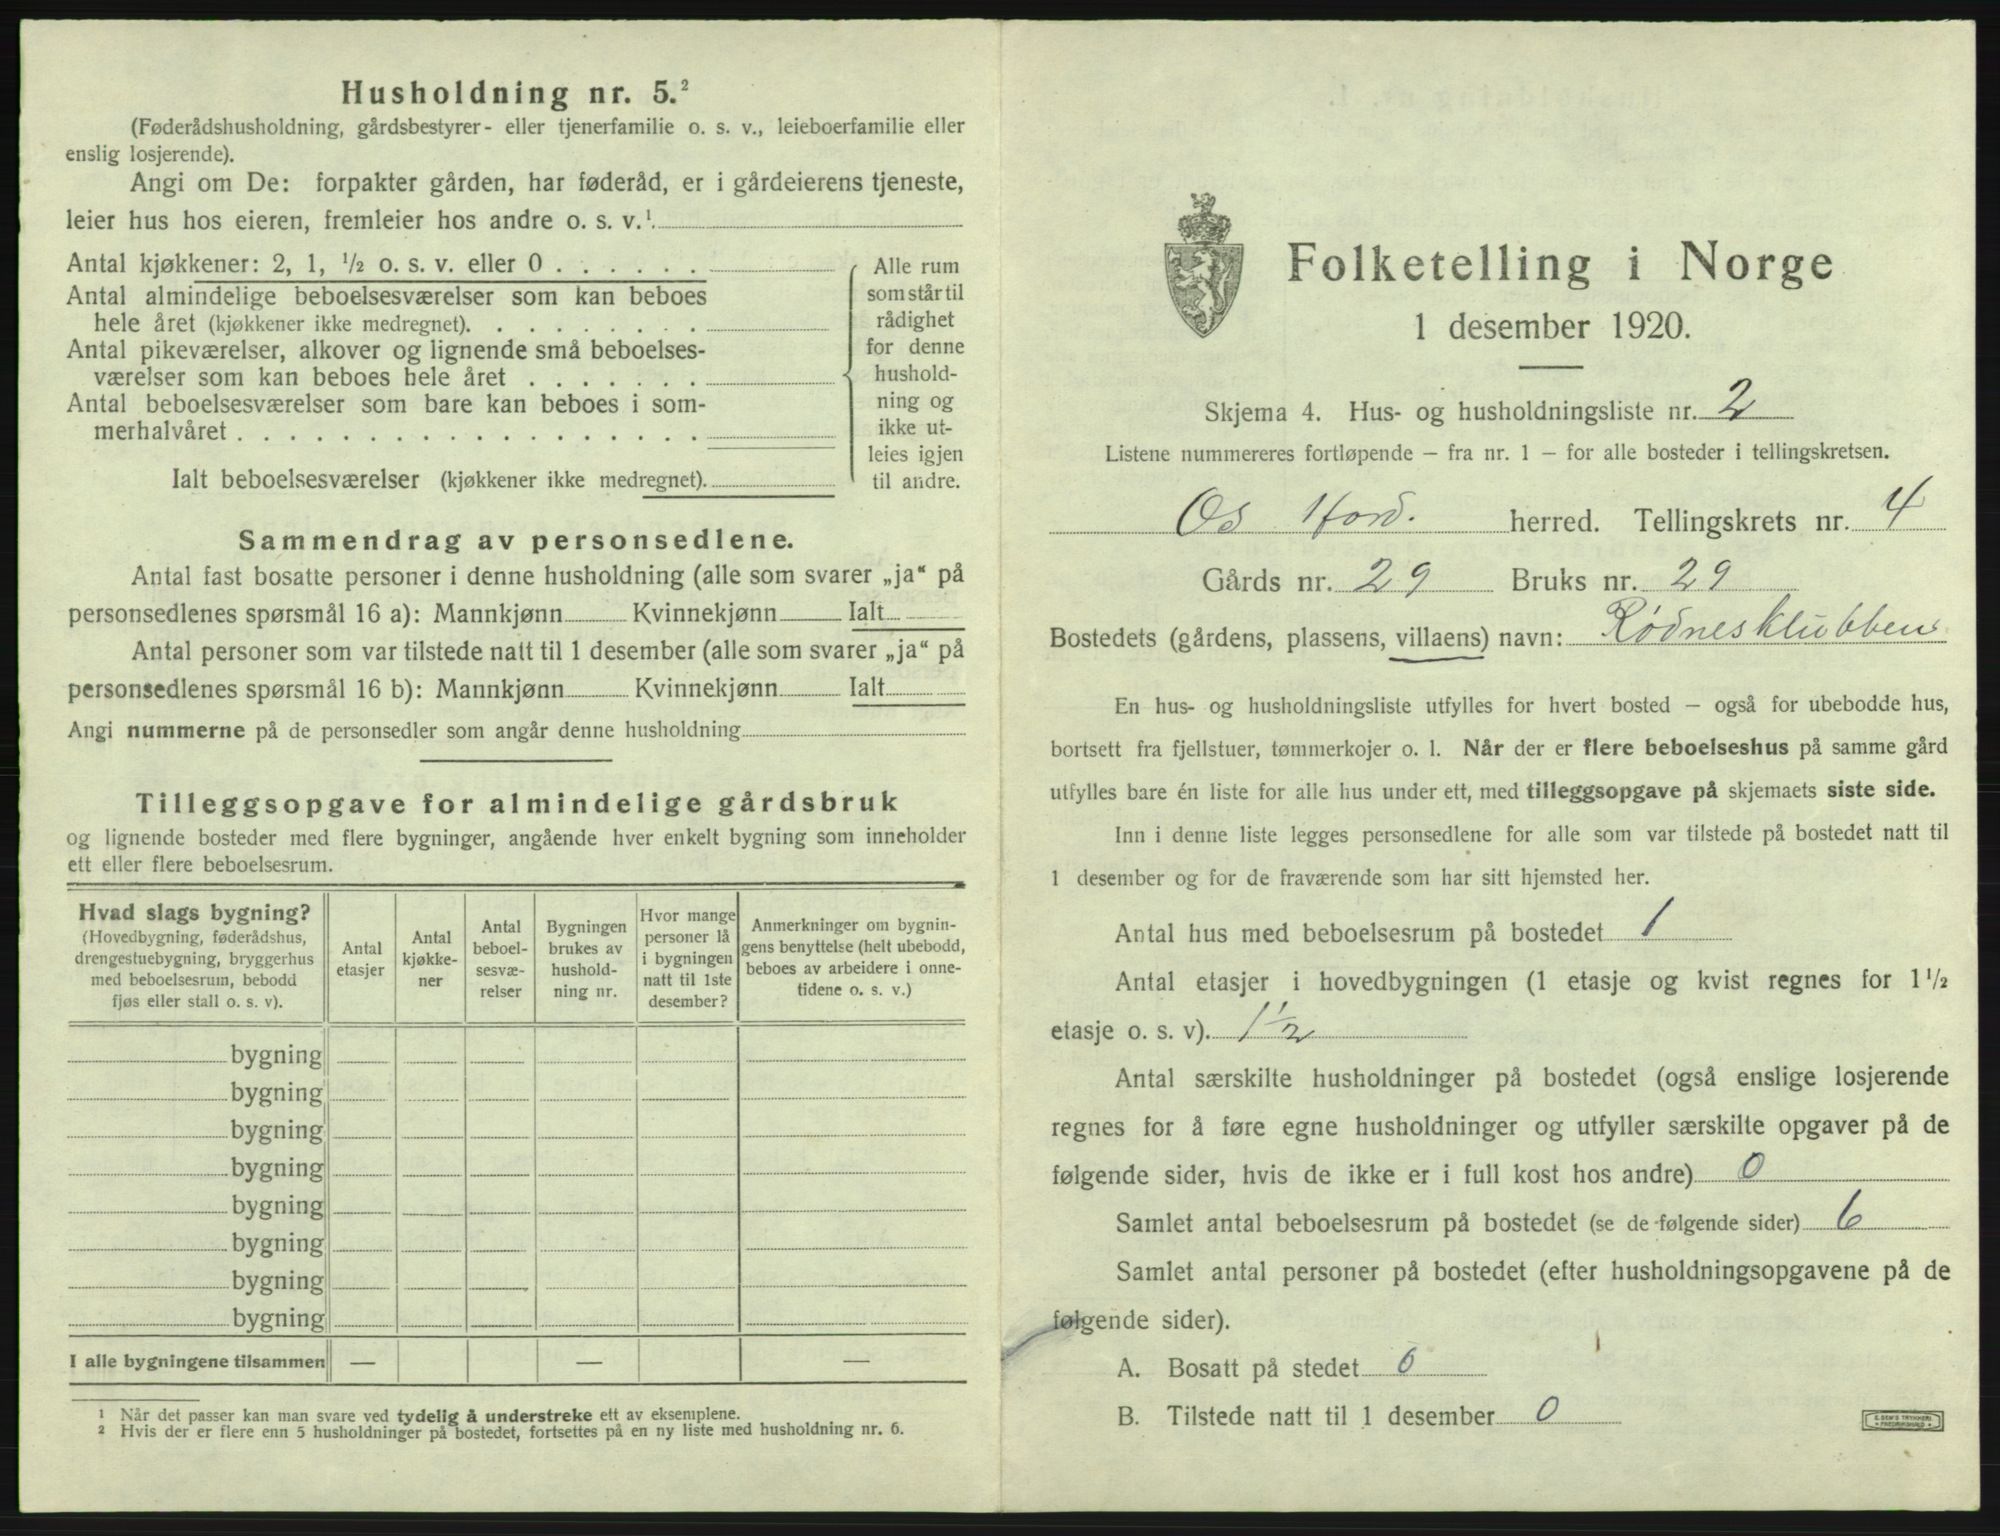 Husholdning nr. 5.²
(Føderådshusholdning, gårdsbestyrer- eller tjenerfamilie o. s. v., leieboerfamilie eller
enslig losjerende).
Angi om De: forpakter gården, har føderåd, er i gårdeierens tjeneste,
leier hus hos eieren, fremleier hos andre o. s. v.¹
Antal kjøkkener: 2, 1, ½ o. s. v. eller 0 . . . . . .
Antal almindelige beboelsesværelser som kan beboes
hele året (kjøkkener ikke medregnet). . . . . . . . .
Antal pikeværelser, alkover og lignende små beboelses-
værelser som kan beboes hele året . . . . . . .
Antal beboelsesværelser som bare kan beboes i som-
merhalvåret . . . . . . . . . . . . . . . . . .
Ialt beboelsesværelser (kjøkkener ikke medregnet).
Alle rum
som står til
rådighet
for denne
hushold-
ning og
ikke ut-
leies igjen
til andre.
Sammendrag av personsedlene.
Antal fast bosatte personer i denne husholdning (alle som svarer „ja“ på
personsedlenes spørsmål 16 a): Mannkjønn Kvinnekjønn Ialt
Antal personer som var tilstede natt til 1 desember (alle som svarer „ja“ på
personsedlenes spørsmål 16 b): Mannkjønn Kvinnekjønn Ialt
Angi nummerne på de personsedler som angår denne husholdning
Tilleggsopgave for almindelige gårdsbruk
og lignende bosteder med flere bygninger, angående hver enkelt bygning som inneholder
ett eller flere beboelsesrum.
Hvad slags bygning?
(Hovedbygning, føderådshus,
drengestuebygning, bryggerhus
med beboelsesrum, bebodd
fjøs eller stall o. s. v).
Antal
etasjer
Antal
kjøkke-
ner
Antal
beboel-
sesvæ-
relser
Bygningen
brukes av
hushold-
ning nr.
Hvor mange
personer lå
i bygningen
natt til 1ste
desember?
Anmerkninger om bygnin-
gens benyttelse (helt ubebodd,
beboes av arbeidere i onne-
tidene o. s. v.)
bygning
bygning
bygning
bygning
bygning
bygning
bygning
bygning
I alle bygningene tilsammen — — —
¹ Når det passer kan man svare ved tydelig å understreke ett av eksemplene.
² Hvis der er flere enn 5 husholdninger på bostedet, fortsettes på en ny liste med husholdning nr. 6.
Folketelling i Norge
1 desember 1920.
Skjema 4. Hus- og husholdningsliste nr. 2
Listene nummereres fortløpende – fra nr. 1 – for alle bosteder i tellingskretsen.
Os Hord. herred. Tellingskrets nr. 4
Gårds nr. 29 Bruks nr. 29
Bostedets (gårdens, plassens, villaens) navn: Rødnesklubben
En hus- og husholdningsliste utfylles for hvert bosted – også for ubebodde hus,
bortsett fra fjellstuer, tømmerkojer o. l. Når der er flere beboelseshus på samme gård
utfylles bare én liste for alle hus under ett, med tilleggsopgave på skjemaets siste side.
Inn i denne liste legges personsedlene for alle som var tilstede på bostedet natt til
1 desember og for de fraværende som har sitt hjemsted her.
Antal hus med beboelsesrum på bostedet 1
Antal etasjer i hovedbygningen (1 etasje og kvist regnes for 1½
etasje o. s. v). 1½
Antal særskilte husholdninger på bostedet (også enslige losjerende
regnes for å føre egne husholdninger og utfyller særskilte opgaver på de
følgende sider, hvis de ikke er i full kost hos andre) 0
Samlet antal beboelsesrum på bostedet (se de følgende sider) 6
Samlet antal personer på bostedet (efter husholdningsopgavene på de
følgende sider).
A. Bosatt på stedet 0
B. Tilstede natt til 1 desember 0
E. SEM'S TRYKKERI
FREDRIKSHALD